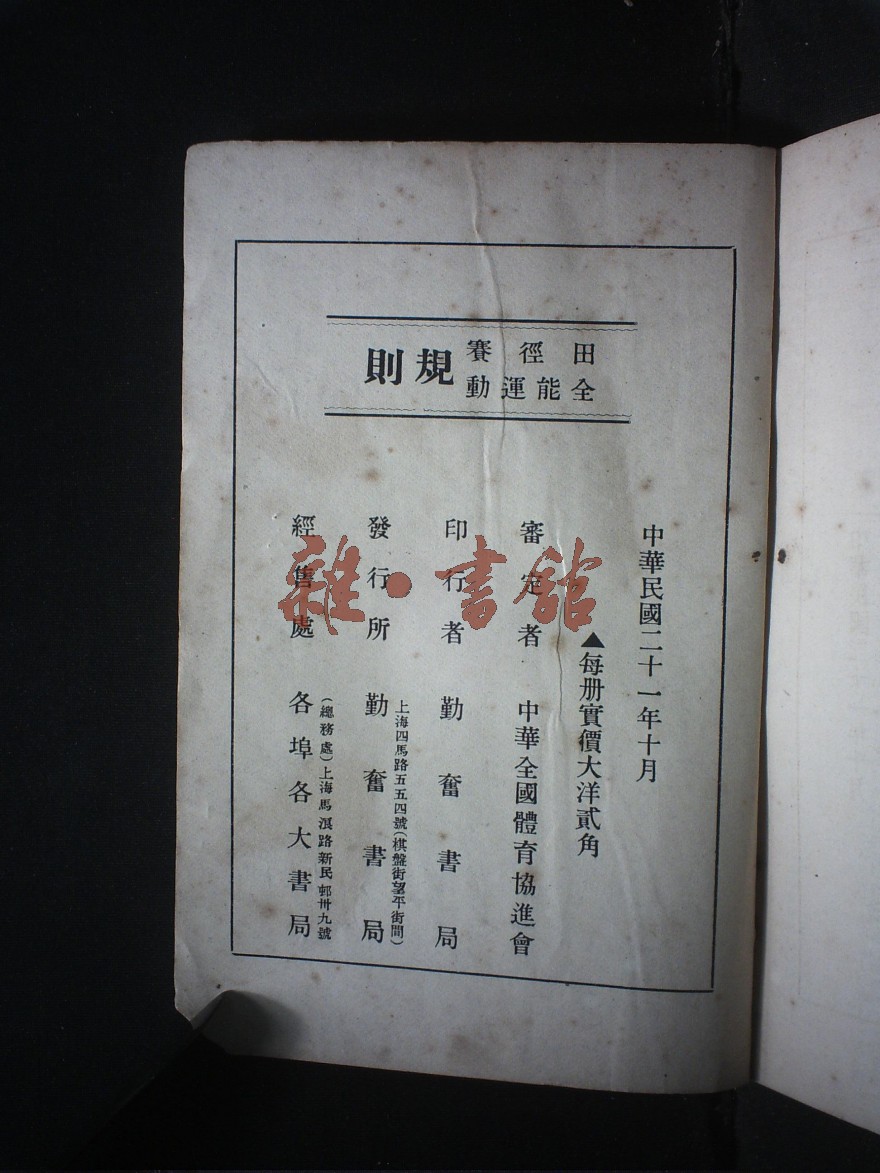 田徑賽
全能運動
規則
中華民國二十一年十月
▲每册實價大洋貳角
審定者 中華全國體育協進會
印行者 勤奮書局
上海四馬路五五四號(棋盤街望平街間)
發行所 勤奮書局
(總務處)上海馬浪路新民邨卅九號
經售處 各埠各大書局
雜·書館